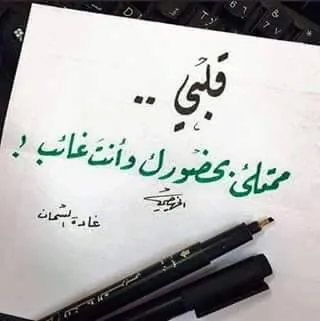 قلبي ..
ممتلئ بحضورك وأنت غائب !
غادة السمان